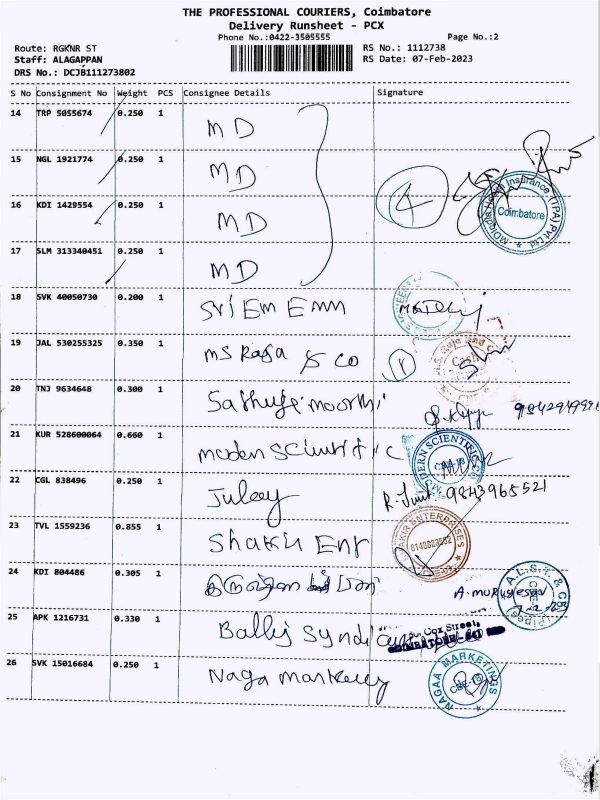 THE PROFESSIONAL COURIERS, Coimbatore
Delivery Runsheet - PCX
Phone No.:0422-3505555 Page No.:2
Route: RGKNR ST RS No.: 1112738
Staff: ALAGAPPAN RS Date: 07-Feb-2023
DRS No.: DCJB111273802
S No Consignment No Weight PCS Consignee Details Signature
14 TRP 5055674 0.250 1 MD
15 NGL 1921774 0.250 1 MD
16 KDI 1429554 0.250 1 MD
4
MDIndia Health Insurance (TPA) Pvt Ltd
Coimbatore
17 SLM 313340451 0.250 1 MD
18 SVK 40050730 0.200 1 Sri Em Emm
19 JAL 530255325 0.350 1 MS Raja & Co
20 TNJ 9634648 0.300 1 Sathyamoorthi
21 KUR 528600064 0.660 1 Modern Scientific
MODERN SCIENTIFIC
22 CGL 838496 0.250 1 R. 9843965521
23 TVL 1559236 0.855 1 Shakir Ent
SHAKIR ENTERPRISES
24 KDI 804486 0.305 1 A. Murugesan
A.L.S.T & CO
7-2-23
25 APK 1216731 0.330 1 Syndicate
Cox Street,
26 SVK 15016684 0.250 1 Naga Marketing
NAGAA MARKETINGS
CBE-18